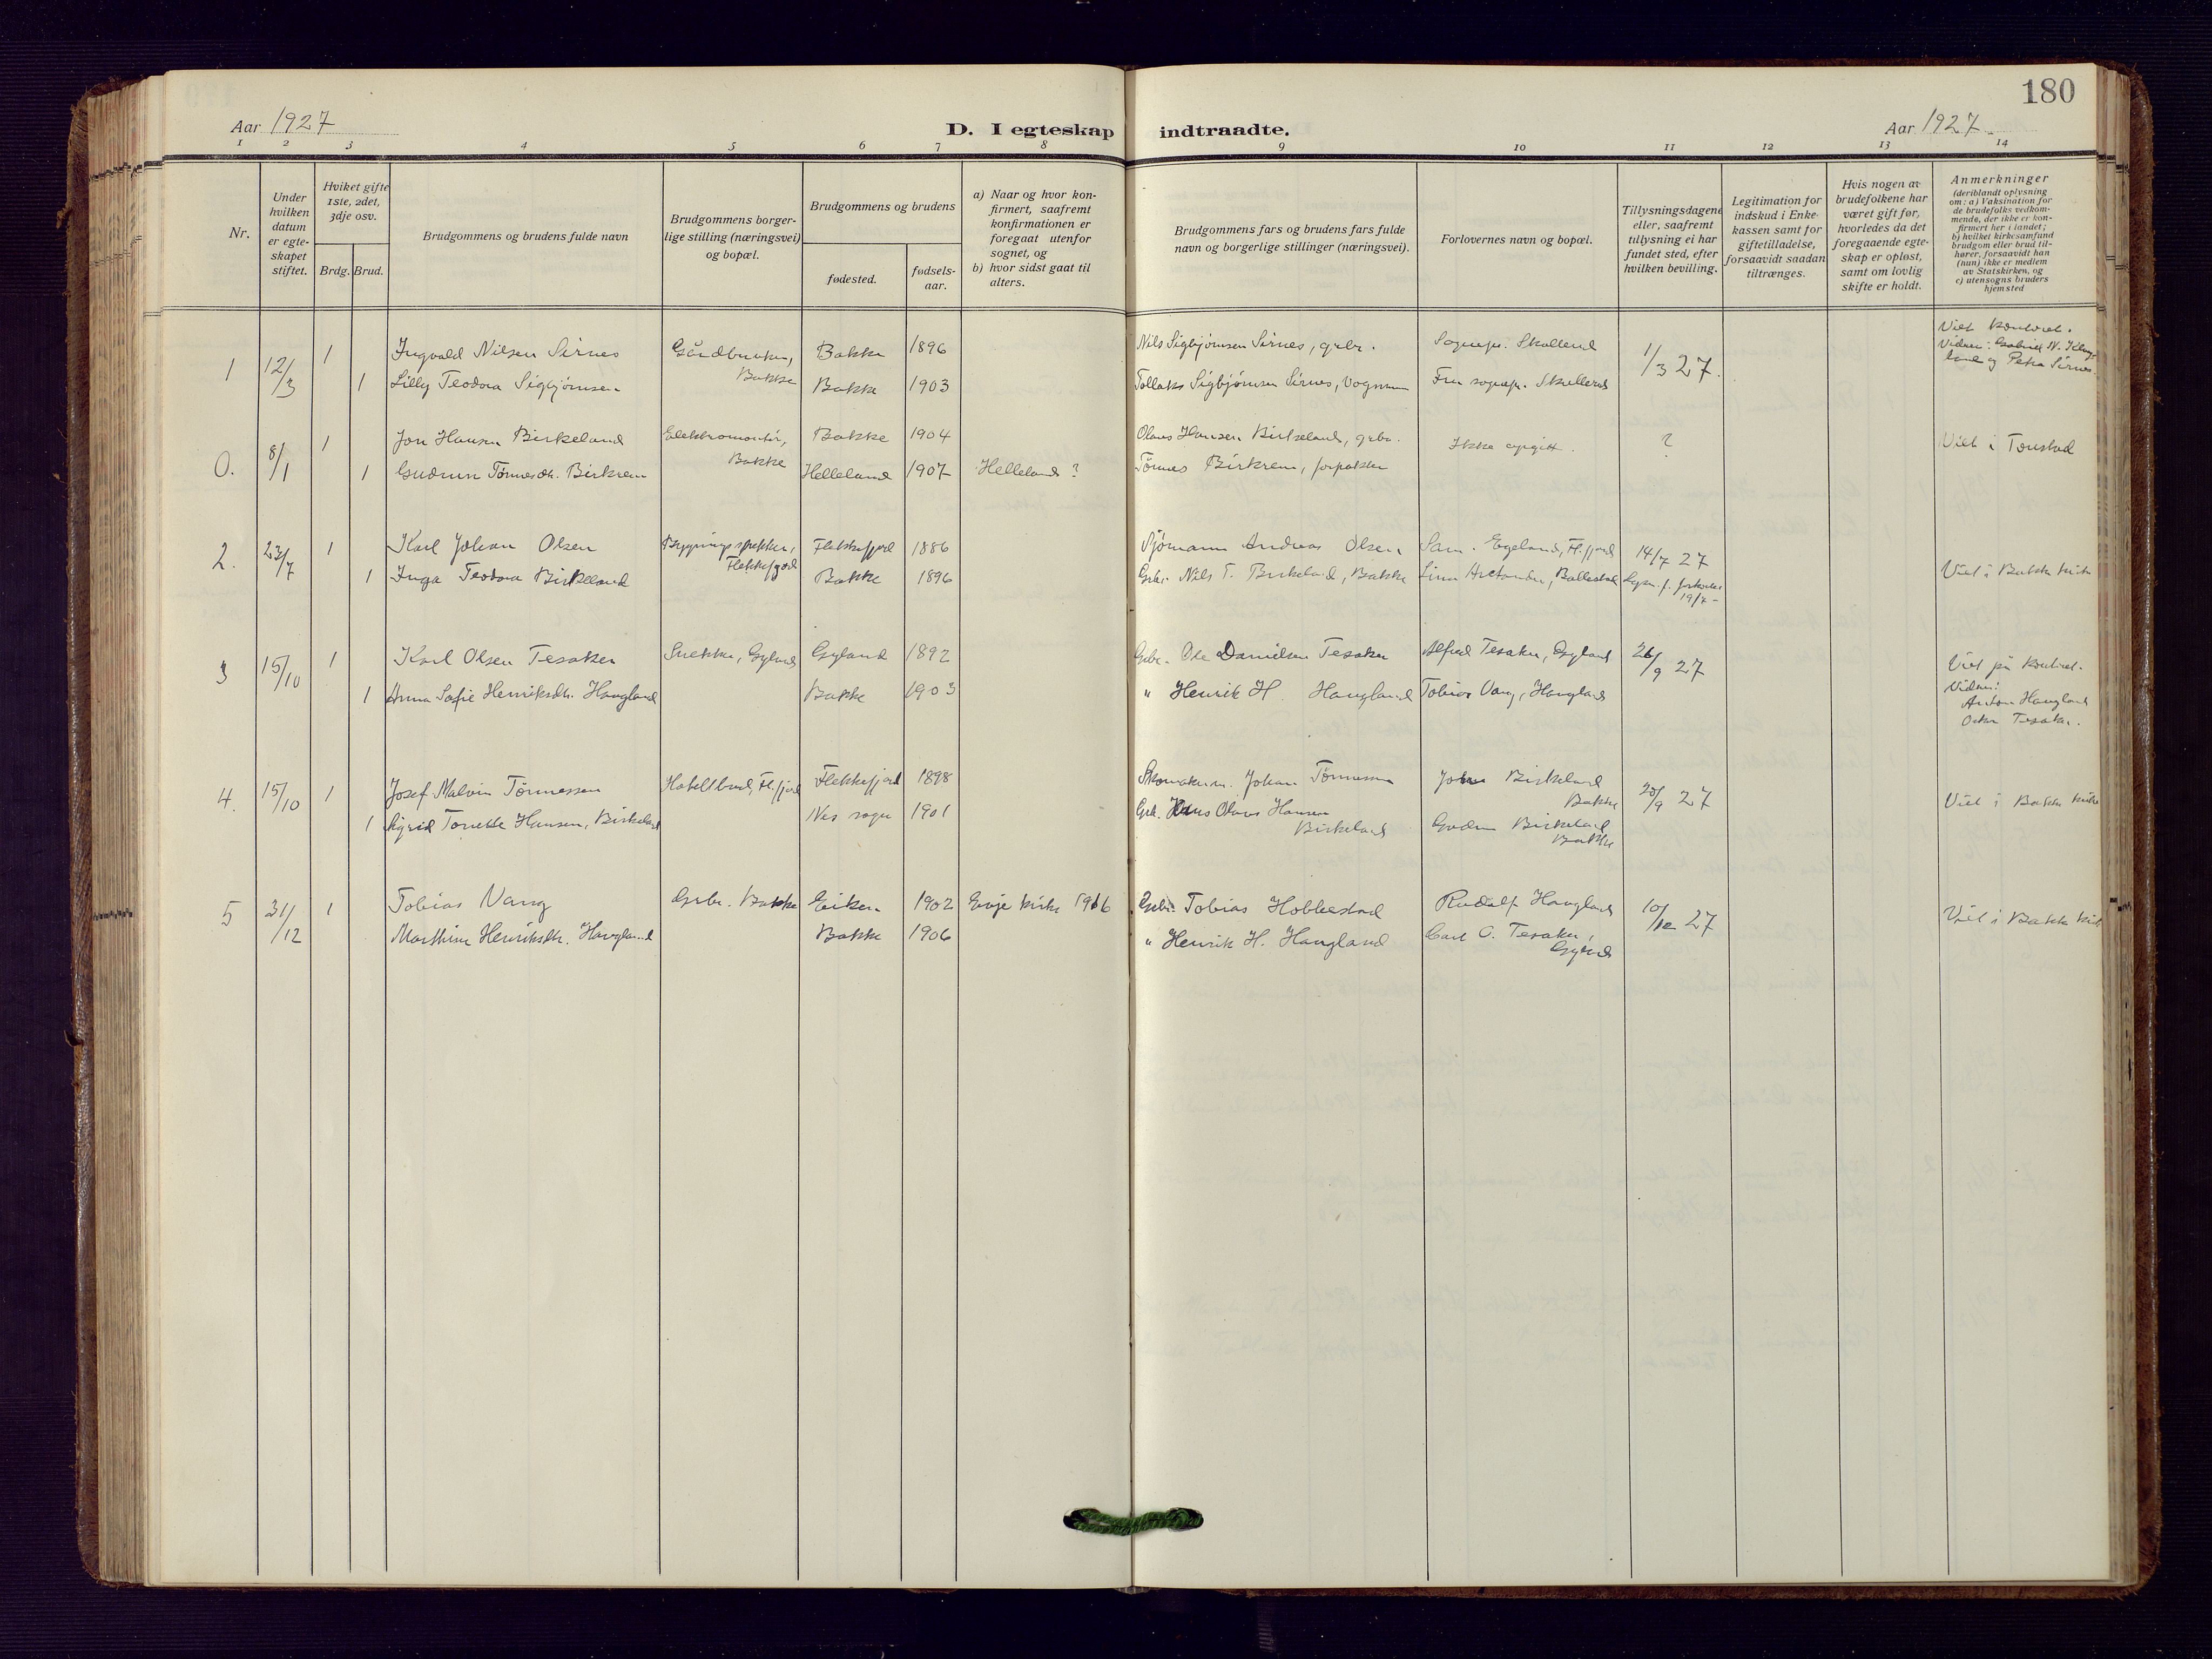 180
Aar 1927
D. I egteskap indtraadte.
Aar 1927
1 2 3 4 5 6 7 8 9 10 11 12 13 14
Nr.
Under hvilken datum er egte-skapet stiftet.
Hviket gifte 1ste, 2det, 3dje osv.
Brdg. Brud.
Brudgommens og brudens fulde navn
Brudgommens borger-lige stilling (næringsvei) og bopæl.
Brudgommens og brudens
fødested.
fødsels-aar.
a) Naar og hvor kon-firmert, saafremt konfirmationen er foregaat utenfor sognet, og
b) hvor sidst gaat til alters.
Brudgommens fars og brudens fars fulde navn og borgerlige stillinger (næringsvei).
Forlovernes navn og bopæl.
Tillysningsdagene eller, saafremt tillysning ei har fundet sted, efter hvilken bevilling.
Legitimation for indskud i Enke-kassen samt for giftetilladelse, forsaavidt saadan tiltrænges.
Hvis nogen av brudefolkene har været gift før, hvorledes da det foregaaende egte-skap er opløst, samt om lovlig skifte er holdt.
Anmerkninger
(deriblandt oplysning om: a) Vaksination for de brudefolks vedkom-mende, der ikke er kon-firmert her i landet;
b) hvilket kirkesamfund brudgom eller brud til-hører, forsaavidt han (hun) ikke er medlem av Statskirken, og
c) utensogns bruders hjemsted
1 12/3 1 Ingvald Nilsen Sirnes Gårdbruker, Bakke Bakke 1896 Nils Sigbjørnsen Sirnes, grbr. Sognepr. Skulleud 1/3 27. Viet kontoret.
Vidner: Gabriel N. og Petra Sirnes
1 Lilly Teodora Sigbjørnsen Bakke 1903 Tollaks Sigbjørnsen Sirnes, Vognmann Fru sognepr. Skulleud
0. 8/1 1 Jon Hansen Birkeland Elektromontør, Bakke Bakke 1904 Olaus Hansen Birkeland, grbr. Ikke opgitt. ? Viet i Tonstad
1 Gudrun Tønnesdtr. Birkrem Helleland 1907 Helleland? Tønnes Birkrem, forpakter
2. 23/7 1 Karl Johan Olsen Flekkefjord Flekkefjord 1886 Sjømann Andreas Olsen Sam. Egeland, Fl.fjord 14/7 27 Viet i Bakke kirke
1 Inga Teodora Birkeland Bakke 1896 Grbr. Nils T. Birkeland, Bakke 19/7
3 15/10 1 Karl Olsen Tesaker Snekker, Gyland Gyland 1892 Grbr. Ole Danielsen Tesaker Alfred Tesaker, Gyland 26/9 27 Viet på kontoret.
Vidner: Anton Haugland
Oskar Tesaker.
1 Anna Sofie Henriksdtr. Haugland Bakke 1903 " Henrik H. Haugland Tobias Vang, Haugland
4. 15/10 1 Josef Malvin Tønnessen Hotellbud, Fl.fjord Flekkefjord 1898 Skomakerm. Johan Tønnessen John Birkeland Bakke 25/9 27 Viet i Bakke kirke
1 Sigrid Tonette Hansen, Birkeland Nes sogn 1901 Grb. Hans Olaus Hansen Birkeland Gudrun Birkeland Bakke
5 31/12 1 Tobias Vang Grbr. Bakke Eiken 1902 Evje kirke 1916 Grbr. Tobias Hobbestad Rudolf Haugland 10/12 27 Viet i Bakke kirke
Marthine Henriksdtr. Haugland Bakke 1906 " Henrik H. Haugland Carl O. Tesaker, Gyland